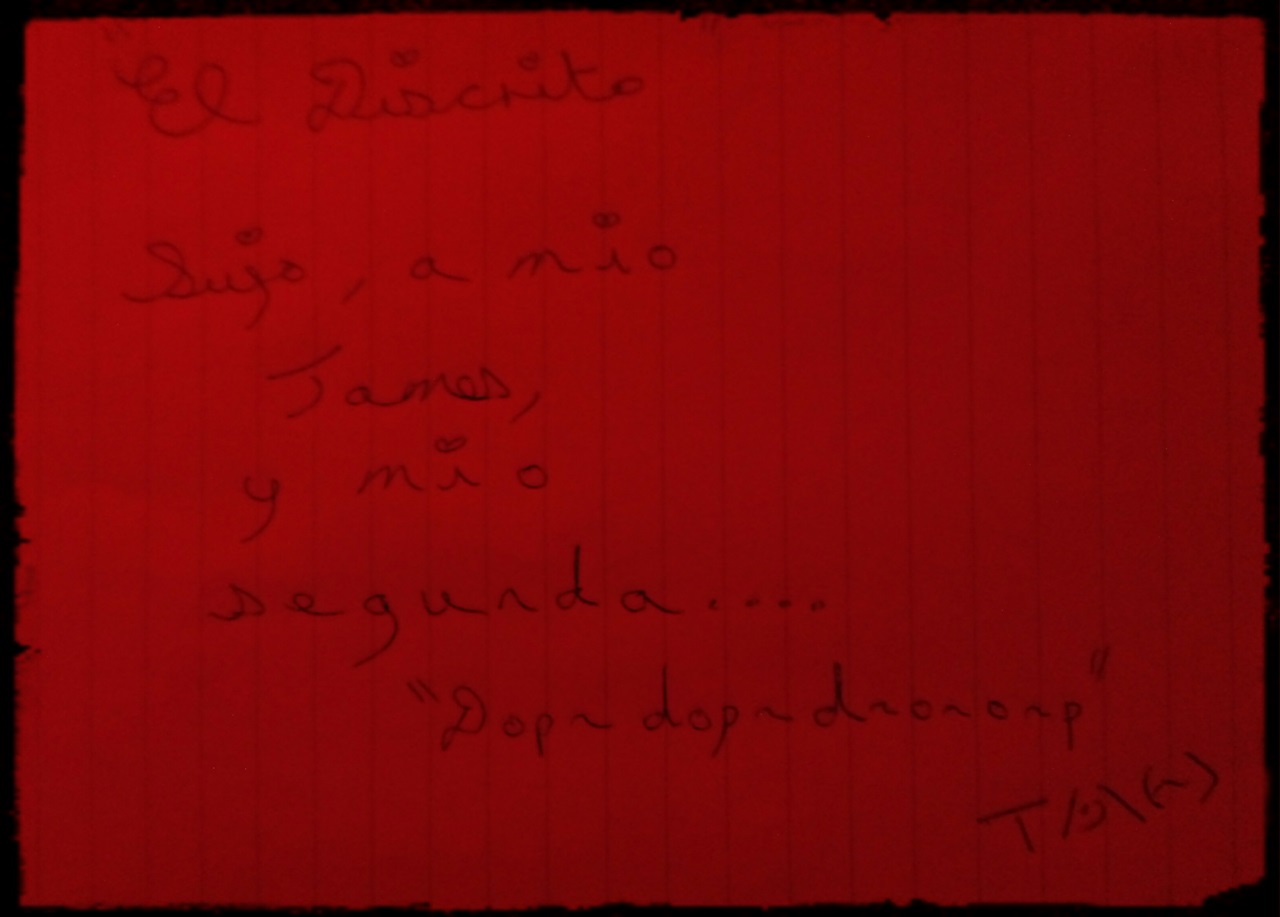 "El Discrito
Sujo, a mio
James,
y mio
segunda....
"Dopr doprdrororp"